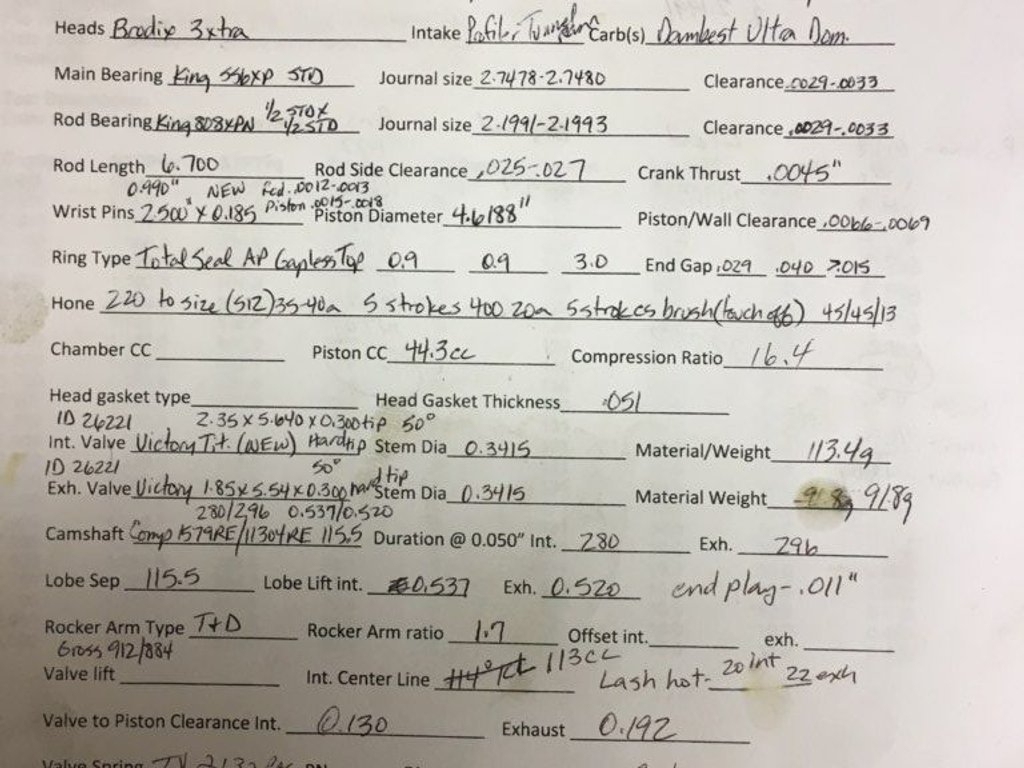 Heads Brodix 3xtra Intake Profiler Tunnel Carb(s) Dambest Ultra Dom.
Main Bearing King 556XP STD Journal size 2.7478-2.7480 Clearance .0029-.0033
1/2 STDX
Rod Bearing King 808XPN 1/2 STD Journal size 2.1991-2.1993 Clearance .0029-.0033
Rod Length 6.700 Rod Side Clearance .025-.027 Crank Thrust .0045"
0.990" NEW .0012-.0013
Wrist Pins 2.500" X 0.185 Piston .0015-.0018 Piston Diameter 4.6188" Piston/Wall Clearance .0066-.0069
Ring Type Total Seal AP Gapless Top 0.9 0.9 3.0 End Gap .029 .040 >.015
Hone 220 to size (512)35-40a 5 strokes 400 20a 5 strokes brush(touch off) 45/45/13
Chamber CC Piston CC 44.3cc Compression Ratio 16.4
Head gasket type Head Gasket Thickness .051
ID 26221 2.35 x 5.640 x 0.300 tip 50°
Int. Valve Victory Tit. (NEW) Hardtip Stem Dia 0.3415 Material/Weight 113.4g
ID 26221 50°
Exh. Valve Victory 1.85 x 5.54 x 0.300 hard tip Stem Dia 0.3415 Material Weight 91.8g 91.8g
280/296 0.537/0.520
Camshaft Comp 1579RE/11304RE 115.5 Duration @ 0.050" Int. 280 Exh. 296
Lobe Sep 115.5 Lobe Lift int. 0.537 Exh. 0.520 end play-.011"
Rocker Arm Type T+D Rocker Arm ratio 1.7 Offset int. exh.
Gross 912/884
Valve lift Int. Center Line 113CL Lash hot- 20 int 22 exh
Valve to Piston Clearance Int. 0.130 Exhaust 0.192
Valve Spring